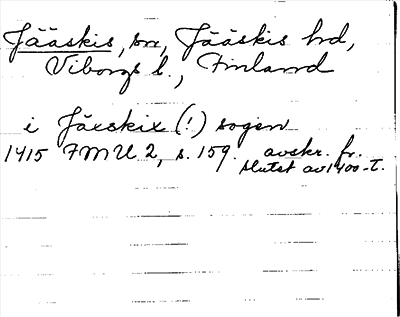 Jääskis, sn, Jääskis hd,
Viborgs l., Finland
i Jäxskix (!) sogen
1415 FMU 2, s. 159. avskr. fr.
slutet av 1400-t.